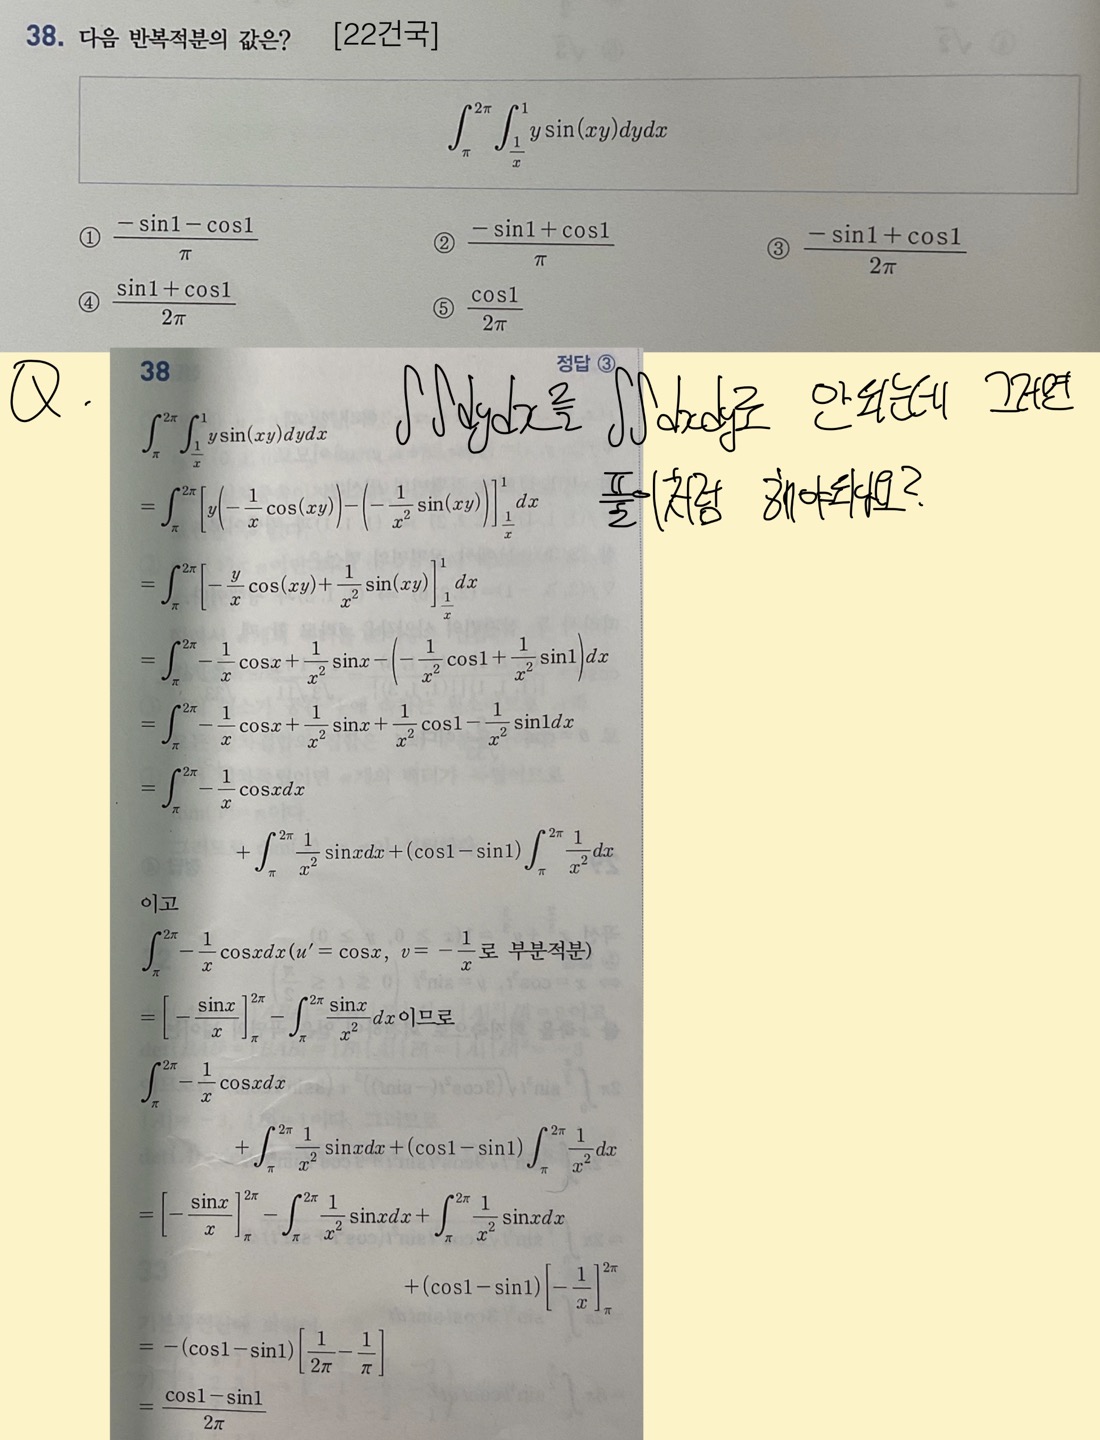 38. 다음 반복적분의 값은? [22건국]
∫_π^{2π} ∫_{1/x}^1 y sin(xy)dydx
① (−sin1−cos1)/π ② (−sin1+cos1)/π ③ (−sin1+cos1)/2π
④ (sin1+cos1)/2π ⑤ cos1/2π
Q.
38 정답 ③
∫∫dydx를 ∫∫dxdy로 안되는데 그러면
풀이처럼 해야되나요?
∫_π^{2π} ∫_{1/x}^1 y sin(xy)dydx
= ∫_π^{2π} [y(−1/x cos(xy))−(−1/x² sin(xy))]_{1/x}^1 dx
= ∫_π^{2π} [−y/x cos(xy)+1/x² sin(xy)]_{1/x}^1 dx
= ∫_π^{2π} −1/x cosx+1/x² sinx−(−1/x² cos1+1/x² sin1)dx
= ∫_π^{2π} −1/x cosx+1/x² sinx+1/x² cos1−1/x² sin1dx
= ∫_π^{2π} −1/x cosxdx
+∫_π^{2π} 1/x² sinxdx+(cos1−sin1)∫_π^{2π} 1/x² dx
이고
∫_π^{2π} −1/x cosxdx(u′=cosx, v=−1/x로 부분적분)
= [−sinx/x]_π^{2π} −∫_π^{2π} sinx/x² dx이므로
∫_π^{2π} −1/x cosxdx
+∫_π^{2π} 1/x² sinxdx+(cos1−sin1)∫_π^{2π} 1/x² dx
= [−sinx/x]_π^{2π} −∫_π^{2π} 1/x² sinxdx+∫_π^{2π} 1/x² sinxdx
+(cos1−sin1)[−1/x]_π^{2π}
= −(cos1−sin1)[1/2π−1/π]
= (cos1−sin1)/2π